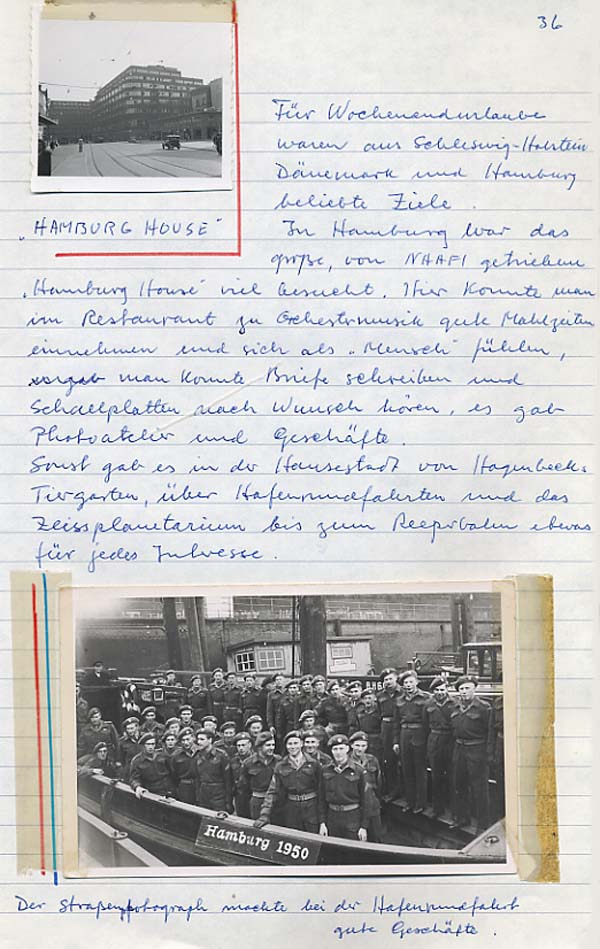 36
Für Wochenendurlaube
waren aus Schleswig-Holstein
Dänemark und Hamburg
beliebte Ziele.
„HAMBURG HOUSE“
In Hamburg war das
große, von NAAFI getrieben
„Hamburg House“ viel besucht. Hier konnte man
im Restaurant zu Orchestermusik gute Mahlzeiten
einnehmen und sich als „Mensch“ fühlen,
man konnte Briefe schreiben und
Schallplatten nach Wunsch hören, es gab
Photoatelier und Geschäfte.
Sonst gab es in der Hansestadt von Hagenbecks
Tiergarten, über Hafenrundfahrten und das
Zeissplanetarium bis zum Reeperbahn etwas
für jedes Interesse.
Hamburg 1950
Der Straßenphotograph machte bei der Hafenrundfahrt
gute Geschäfte.